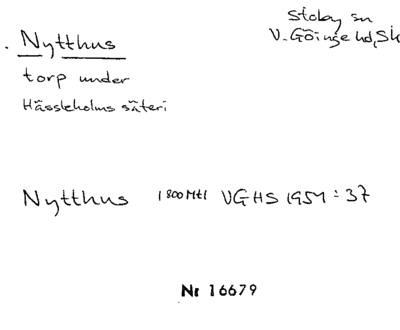 Stoby sn
V. Göinge hd, Sk
Nytthus
torp under
Hässleholms säteri
Nytthus 1800 Mtl VGHS 1951:37
Nr 16679